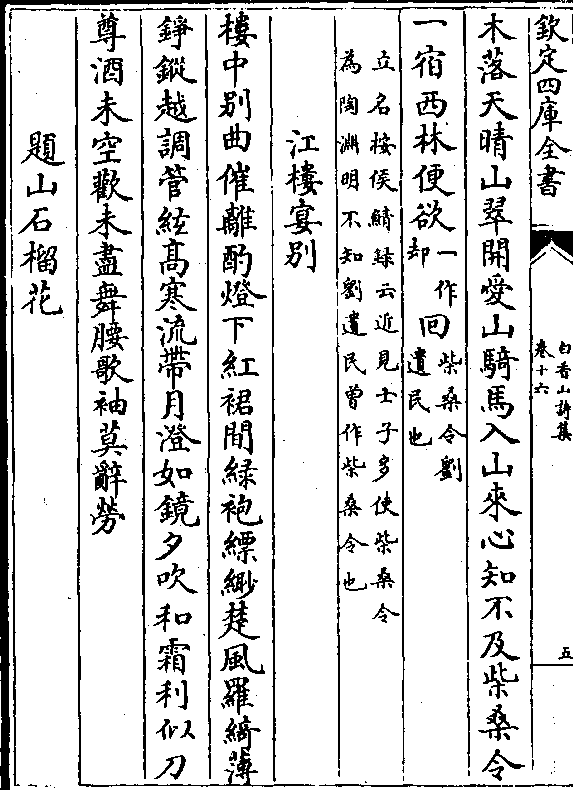 欽定四庫全書
白香山詩集
卷十六
五
木落天晴山翠開愛山騎馬入山來心知不及柴桑令
一宿西林便欲一作却回柴桑令劉遺民也
立名按侯鯖錄云近見士子多使柴桑令
為陶淵明不知劉遺民曽作柴桑令也
江樓宴别
樓中别曲催離酌燈下紅裙間緑袍縹緲楚風羅綺薄
錚鏦越調管絃髙寒流帶月澄如鏡夕吹和霜利似刀
尊酒未空歡未盡舞腰歌袖莫辭勞
題山石榴花